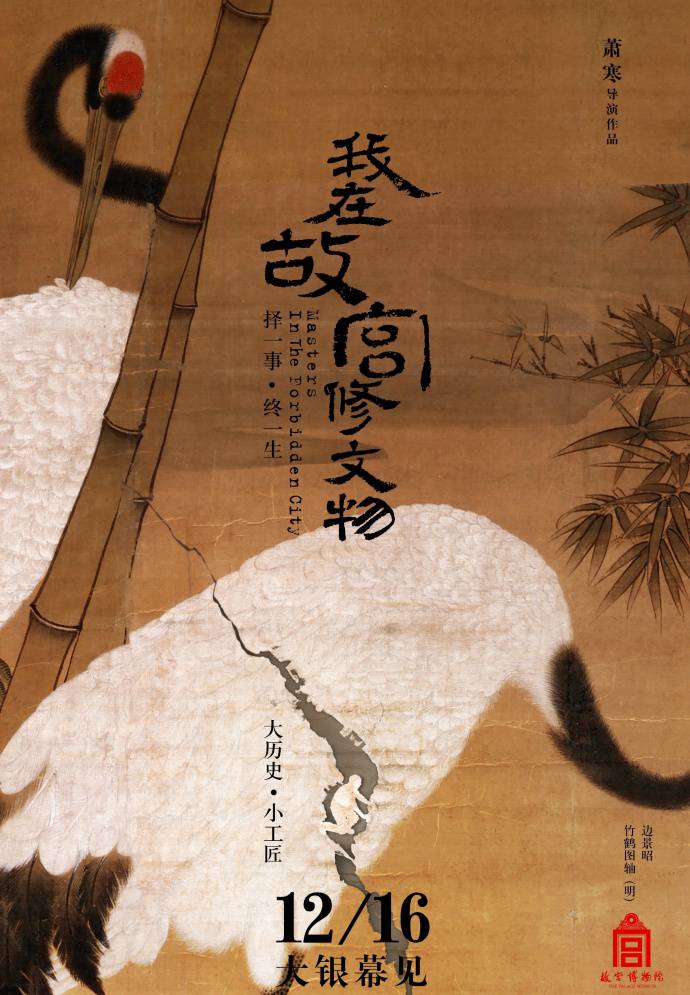 萧寒导演作品
我在故宫修文物
Masters
In The Forbidden City
择一事·终一生
大历史·小工匠
边景昭
竹鹤图轴(明)
12/16
大银幕见
故宫博物院
THE PALACE MUSEUM